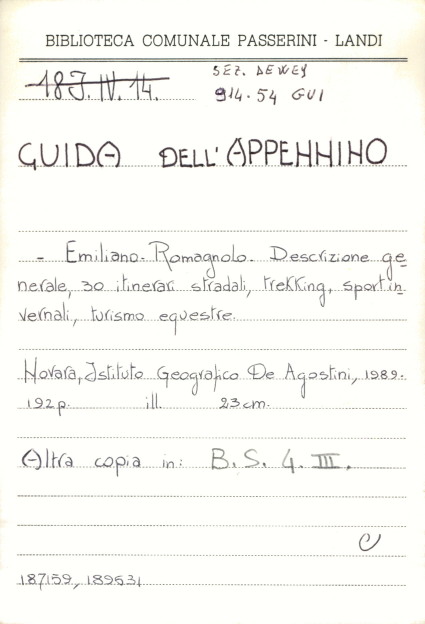 BIBLIOTECA COMUNALE PASSERINI - LANDI
18J.IV.14. SEZ. DEWEY
914.54 GUI
GUIDA DELL'APPENNINO
- Emiliano-Romagnolo. Descrizione ge=
nerale, 30 itinerari stradali, trekking, sport in=
vernali, turismo equestre.
Novara, Istituto Geografico De Agostini, 1989.
192 p. ill. 23 cm.
Altra copia in: B.S. 4. III.
C
187159, 189531